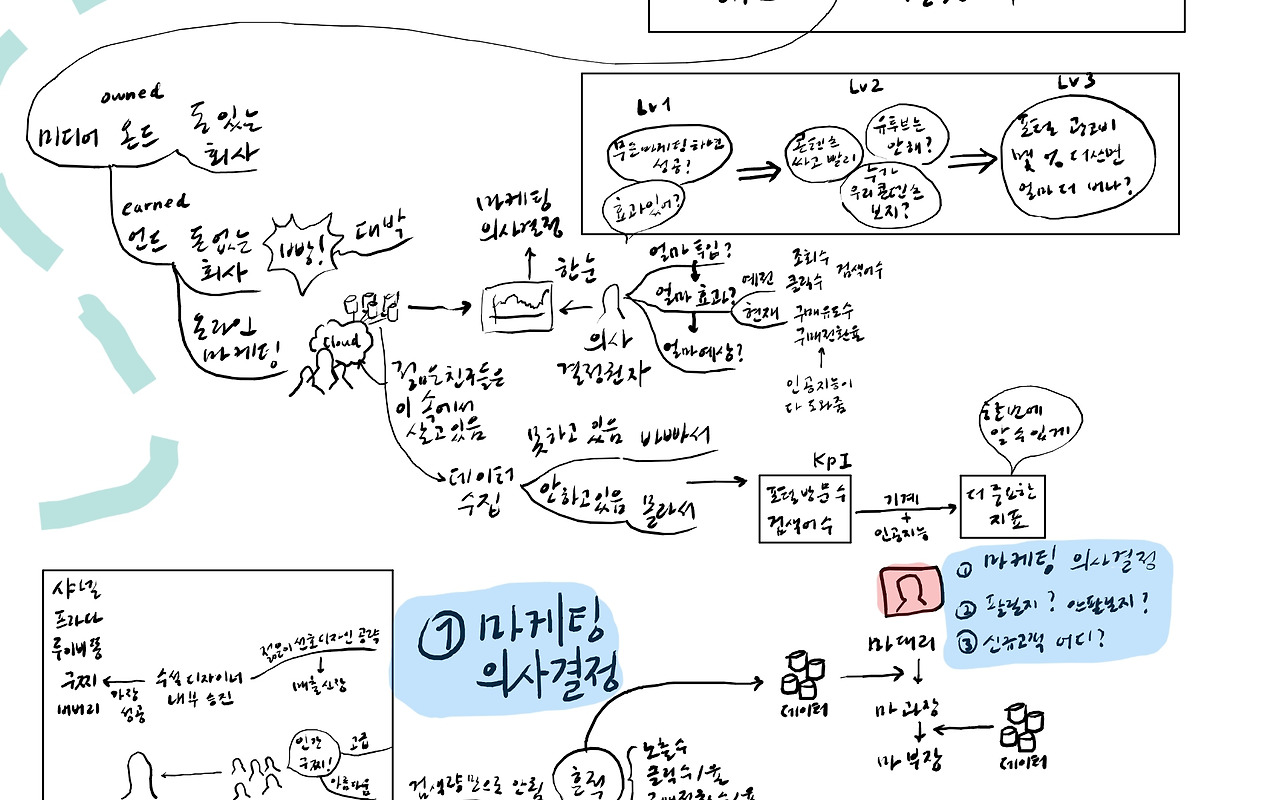 owned
미디어 온드 돈 있는
회사
earned
언드 돈 없는
회사
1빵!
대박
온라인
마케팅
Cloud
젊은친구들은
이 속에서
살고있음
마케팅
의사결정
한눈
의사
결정권자
얼마 투입?
얼마 효과?
얼마예상?
예전
조회수
클릭수 검색어수
현재
구매유도수
구매전환율
인공지능이
다 도와줌
Lv1
무슨마케팅하면
성공?
효과있어?
Lv2
콘텐츠
싸고 빨리
유튜브는
안해?
누가
우리콘텐츠
보지?
Lv3
포털 광고비
몇 억 더쓰면
얼마 더 버나?
데이터
수집
못하고 있음 바빠서
안하고있음 몰라서
KPI
포털방문수
검색어수
기계
+
인공지능
더 중요한
지표
한번에
알 수 있게
① 마케팅 의사결정
② 팔릴지? 안팔릴지?
③ 신규고객 어디?
마대리
마과장
마부장
데이터
데이터
① 마케팅
의사결정
샤넬
프라다
루이비통
구찌
버버리
가장
성공
수석 디자이너
내부 승진
젊은이 선호 디자인 공략
매출신장
인간
구찌!
고급
아름다움
검색량만으로 안됨
흔적
노출수
클릭수/율